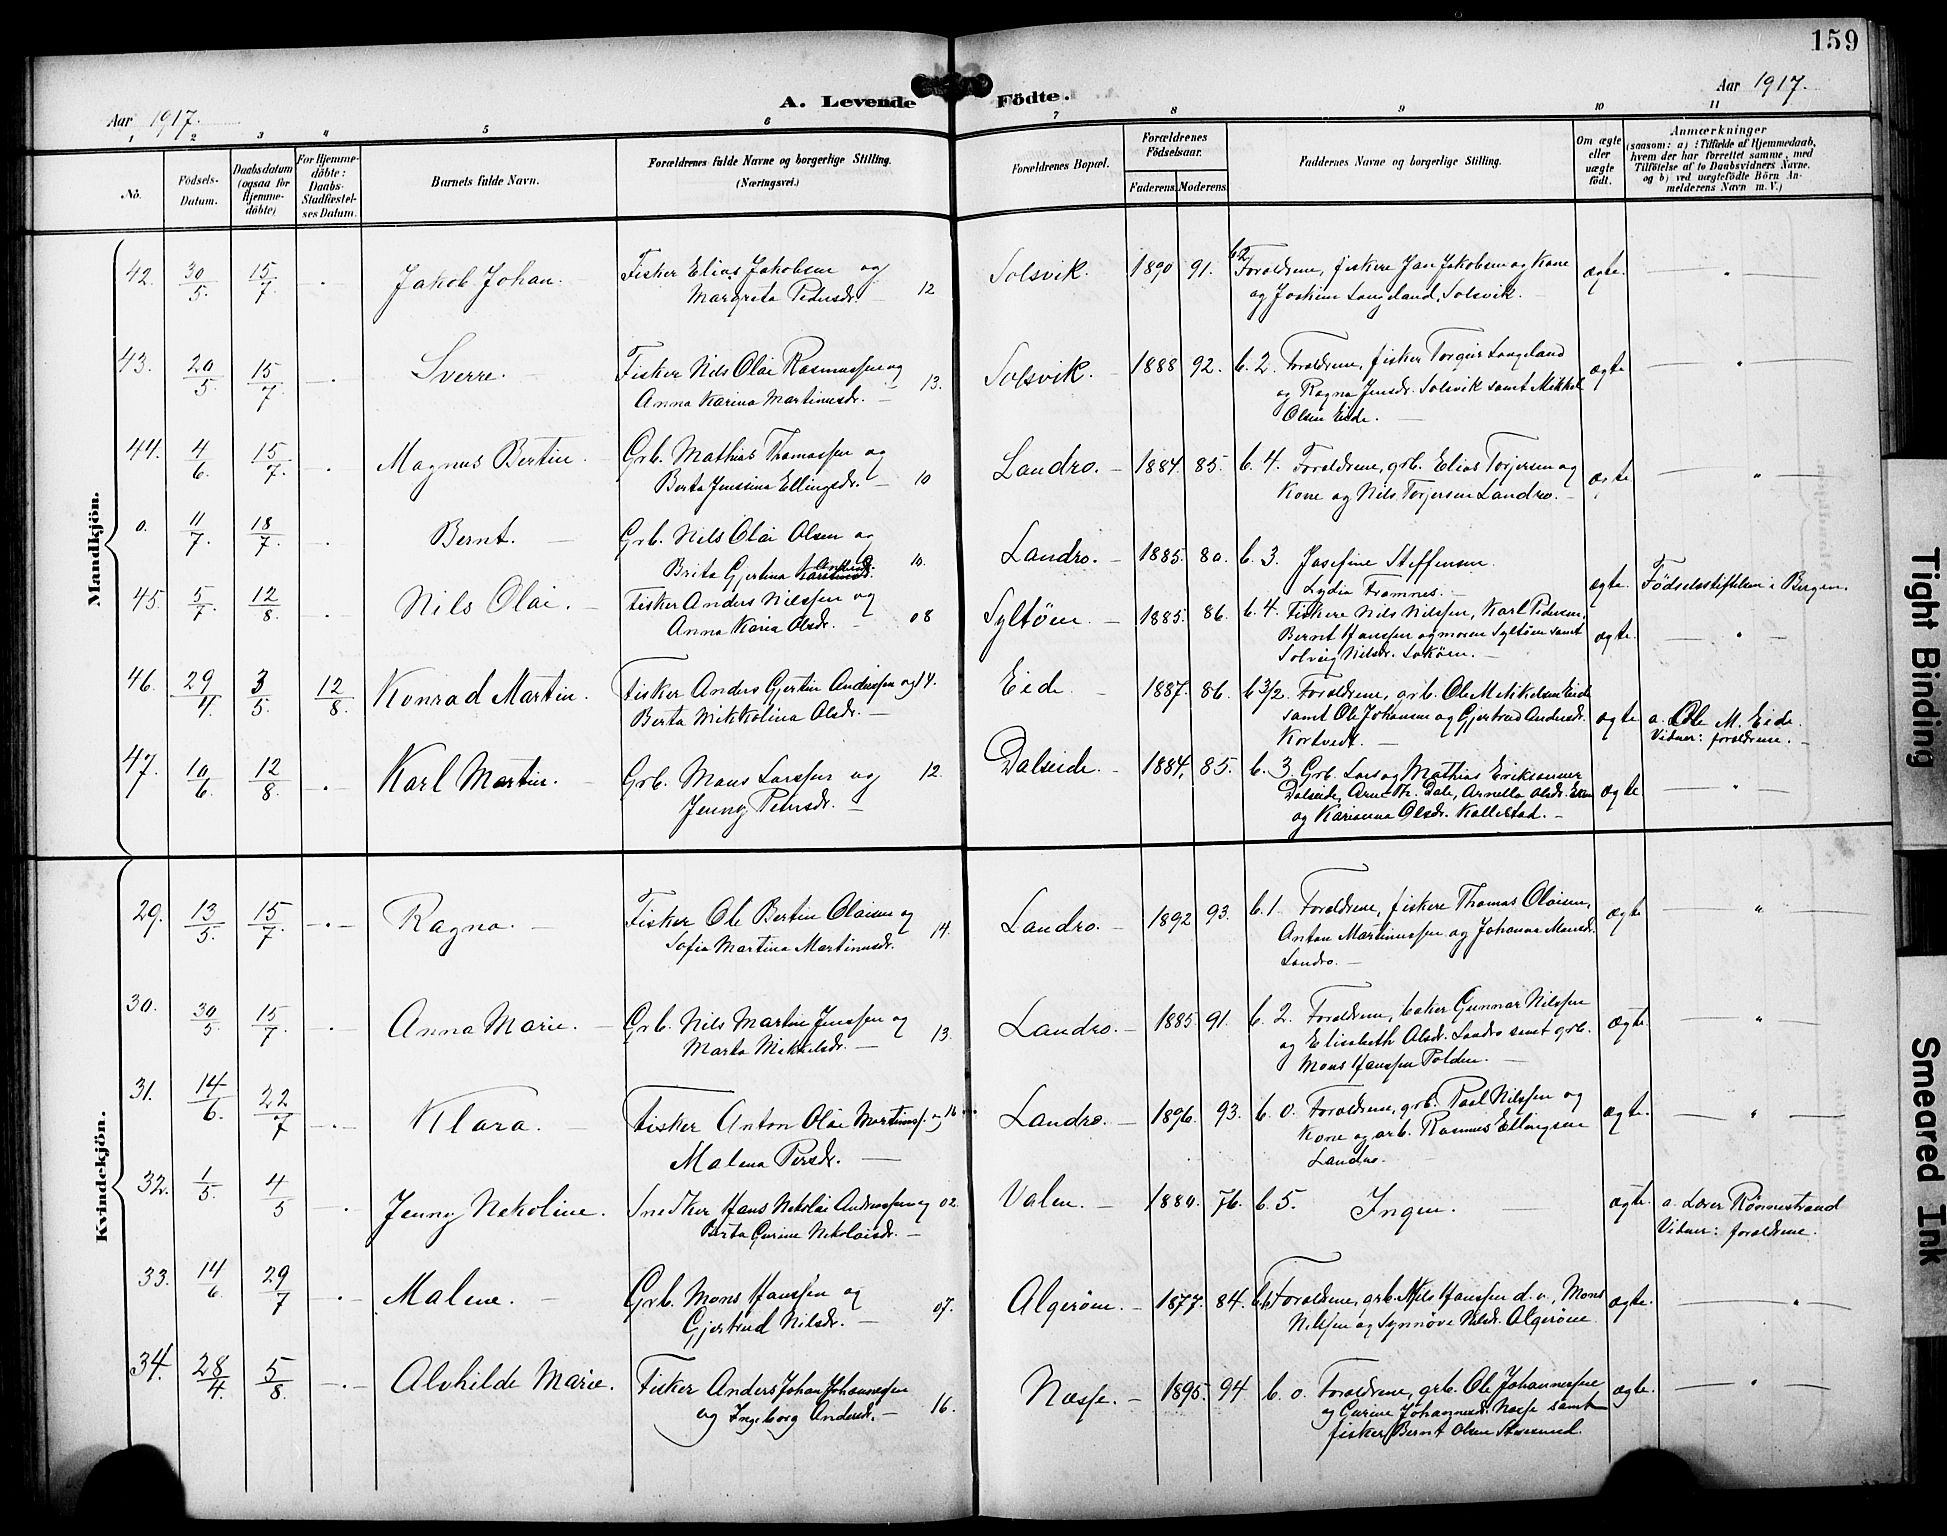 159
Aar 1917.
A. Levende Födte.
Aar 1917.
1 2 3 4 5 6 7 8 9 10 11
No.
Födsels-Datum.
Daabsdatum (ogsaa for Hjemme-döbte)
For Hjemme-döbte: Daabs-Stadfæstel-ses Datum.
Barnets fulde Navn.
Forældrenes fulde Navne og borgerlige Stilling.
(Næringsvei.)
Forældrenes Bopæl.
Forældrenes Födselsaar.
Faderens. Moderens.
Faddernes Navne og borgerlige Stilling.
Om ægte eller uægte födt.
Anmærkninger
(saasom: a) i Tilfælde af Hjemmedaab,
hvem der har forrettet samme, med
Tilföielse af to Daabsvidners Navne.
og b) ved uægtefödte Börn An-
melderens Navn m. V.)
Mandkjön.
42. 30/5 15/7 - Jakob Johan. Fisker Elias Jakobsen og
Margreta Pedersdr. — 12 Solsvik. 1890 91. b2 Forældrene, fiskere Jan Jakobsen og Kone
og Joakim Langeland, Solsvik. — ægte. — " —
43. 20/5 15/7 - Sverre. Fisker Nils Olai Rasmussen og
Anna Karina Martinusdr. — 13. Solsvik. — 1888 92. b. 2. Forældrene, fisker Torgeir Langeland
og Ragna Jensdr. Solsvik samt Mikkel
Olsen Eide. — ægte — " —
44. 4/6 15/7 - Magnus Bertin. Grb. Mathias Thomassen og
Berta Jenssina Ellingsdr. — 10 Landro. — 1884. 85. b. 4. Forældrene, grb. Elias Torjersen og
Kone og Nils Torjersen Landro. — ægte — " —
0. 11/7 18/7 - Bernt. — Grb. Nils Olai Olsen og
Brita Gjertina 10. Landro. — 1885. 80. b. 3. Josefine Steffensen.
Lydia Framnes. — ægte. Födselsstiftelsen i Bergen.
45. 5/7 12/8 - Nils Olai. — Fisker Anders Nilssen og
Anna Karia Olsdr. — 08 Syltöen. — 1885. 86. b. 4. Fiskere Nils Nilssen, Karl Pedersen,
Bernt Hanssen og moren Syltöen samt
Solveig Nilsdr. Loköen. — ægte. — " —
46. 29/4 3/5 12/8. Konrad Martin. Fisker Anders Gjertin Anderssen og 14.
Berta Mikkolina Olsdr. — Eide. — 1887. 86. b 3/2. Forældrene, grb. Ole M. Mikelsen Eide
samt Ole Johansen og Gjertrud Andersdr.
Kortvedt. — ægte a. Ole M. Eide.
Vidner: forældrene. —
47. 10/6 12/8 - Karl Martin. — Grb. Mons Larssen og 12.
Jenny Petersdr. — Dalseide. — 1884. 85. b. 3. Grb. Lars og Mathias Eriksønner
Dalseide, Arne Th. Dale, Arnella Olsdr.
og Karianna Olsdr. Kallestad. — ægte — " —
Kvindekjön.
29. 13/5 15/7 - Ragna. — Fisker Ole Bertin Olaisen og
Sofia Martina Martinusdr. 14. Landro. — 1892 93. b. 1. Forældrene, fiskere Thomas Olaisen,
Anton Martinussen og Johanna Monsdr.
Landro. — ægte — " —
30. 30/5 15/7 - Anna Marie. — Grb. Nils Martin Jenssen og
Marta Mikkelsdr. — 13. Landro. — 1885. 91. b. 2. Forældrene, baker Gunnar Nilssen
og Elisabeth Olsdr. Landro samt grb.
Mons Hanssen Polden. — ægte. — " —
31. 14/6. 22/7 - Klara. — Fisker Anton Olai Martinuss. og 16
Malena Persdr. — Landro. — 1896. 93. b. 0. Forældrene, grb. Paal Nilssen og
Kone og grb. Rasmus Ellingsen
Landro. — ægte. — " —
32. 1/5. 4/5 - Jenny Nekoline. Snedker Hans Nikolai Andreassen og 02.
Berta Gurine Nikolaisdr. — Valen. — 1880. 76. b. 5. Ingen. — ægte. a. Lærer Rönnestrand
Vidner: forældrene.
33. 14/6. 29/7 - Malene. — Grb. Mons Hanssen og
Gjertrud Nilsdr. — 07. Algeröen. — 1877. 84. Forældrene, grb. Nils Hanssen d. e., Mons
Nilssen og Synnöve Nilsdr. Algeröen ægte. — " —
34. 28/4. 5/8 - Alvhilde Marie. Fisker Anders Johan Johannessen
og Ingeborg Andersdr. — 16. Næsse. — 1895. 94 b. 0. Forældrene, grb. Ole Johannessen
og Gurine Johannesdr. Næsse samt
fisker Bernt Olsen ægte. — " —
Tight Binding
Smeared Ink